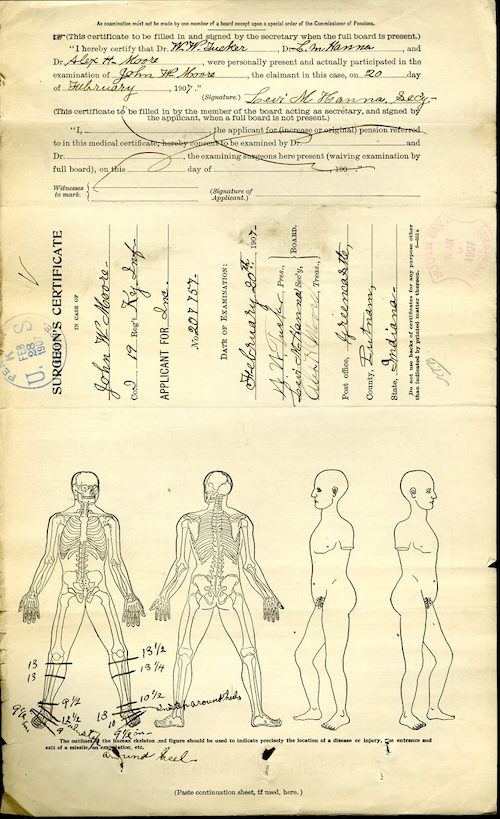 An examination must not be made by one member of a board except upon a special order of the Commissioner of Pensions.
(This certificate to be filled in and signed by the secretary when the full board is present.)
"I hereby certify that Dr. W. W. Tucker, Dr. L. M. Hanna, and
Dr. Alex H. Moore, were personally present and actually participated in the
examination of John W. Moore, the claimant in this case, on 20 day
of February, 1907."
(Signature.) Levi M. Hanna, Secy.
(This certificate to be filled in by the member of the board acting as secretary, and signed by
the applicant, when a full board is not present.)
"I, the applicant for (increase or original) pension referred
to in this medical certificate, hereby consent to be examined by Dr. and
Dr. , the examining surgeons here present (waiving examination by
full board), on this day of , 190 ."
Witnesses
to mark.
(Signature of
Applicant.)
SURGEON'S CERTIFICATE
IN CASE OF
John W Moore
Co. 19 Reg't Ky Inf
APPLICANT FOR Inc.
No. 207757
DATE OF EXAMINATION:
February 20th, 1907
W. W. Tucker, Pres.,
Levi M. Hanna, Sec'y,
Alex H Moore, Treas.,
BOARD.
Post office, Greencastle,
County, Putnam,
State, Indiana
Do not use backs of certificates for any purpose other
than indicated by printed matter thereon.
FEB 28 1907
U. S.
MAR 1907
13
13
13 1/2
13 1/4
9 1/2
10 1/2
12 1/2
13
9 1/2 in
Instep around heels
The outlines of the human skeleton and figure should be used to indicate precisely the location of a disease or injury, the entrance and
exit of a missile, an amputation, etc.
around heel
(Paste continuation sheet, if used, here.)